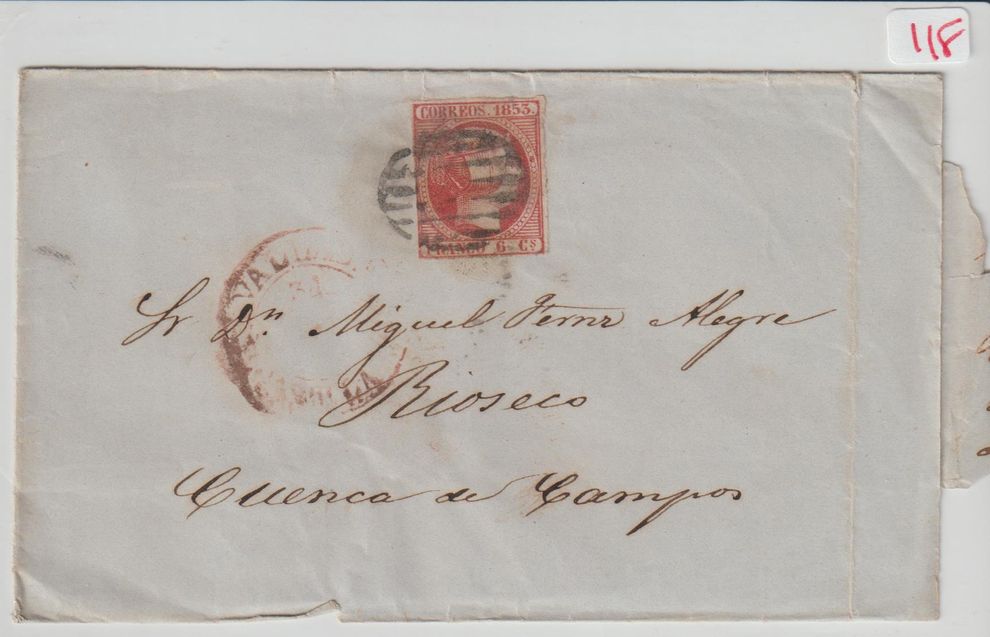 11F
CORREOS. 1853.
6 Cs
VALLADOLID
31
Sr Dn Miguel Fernz Alegre
Rioseco
Cuenca de Campos